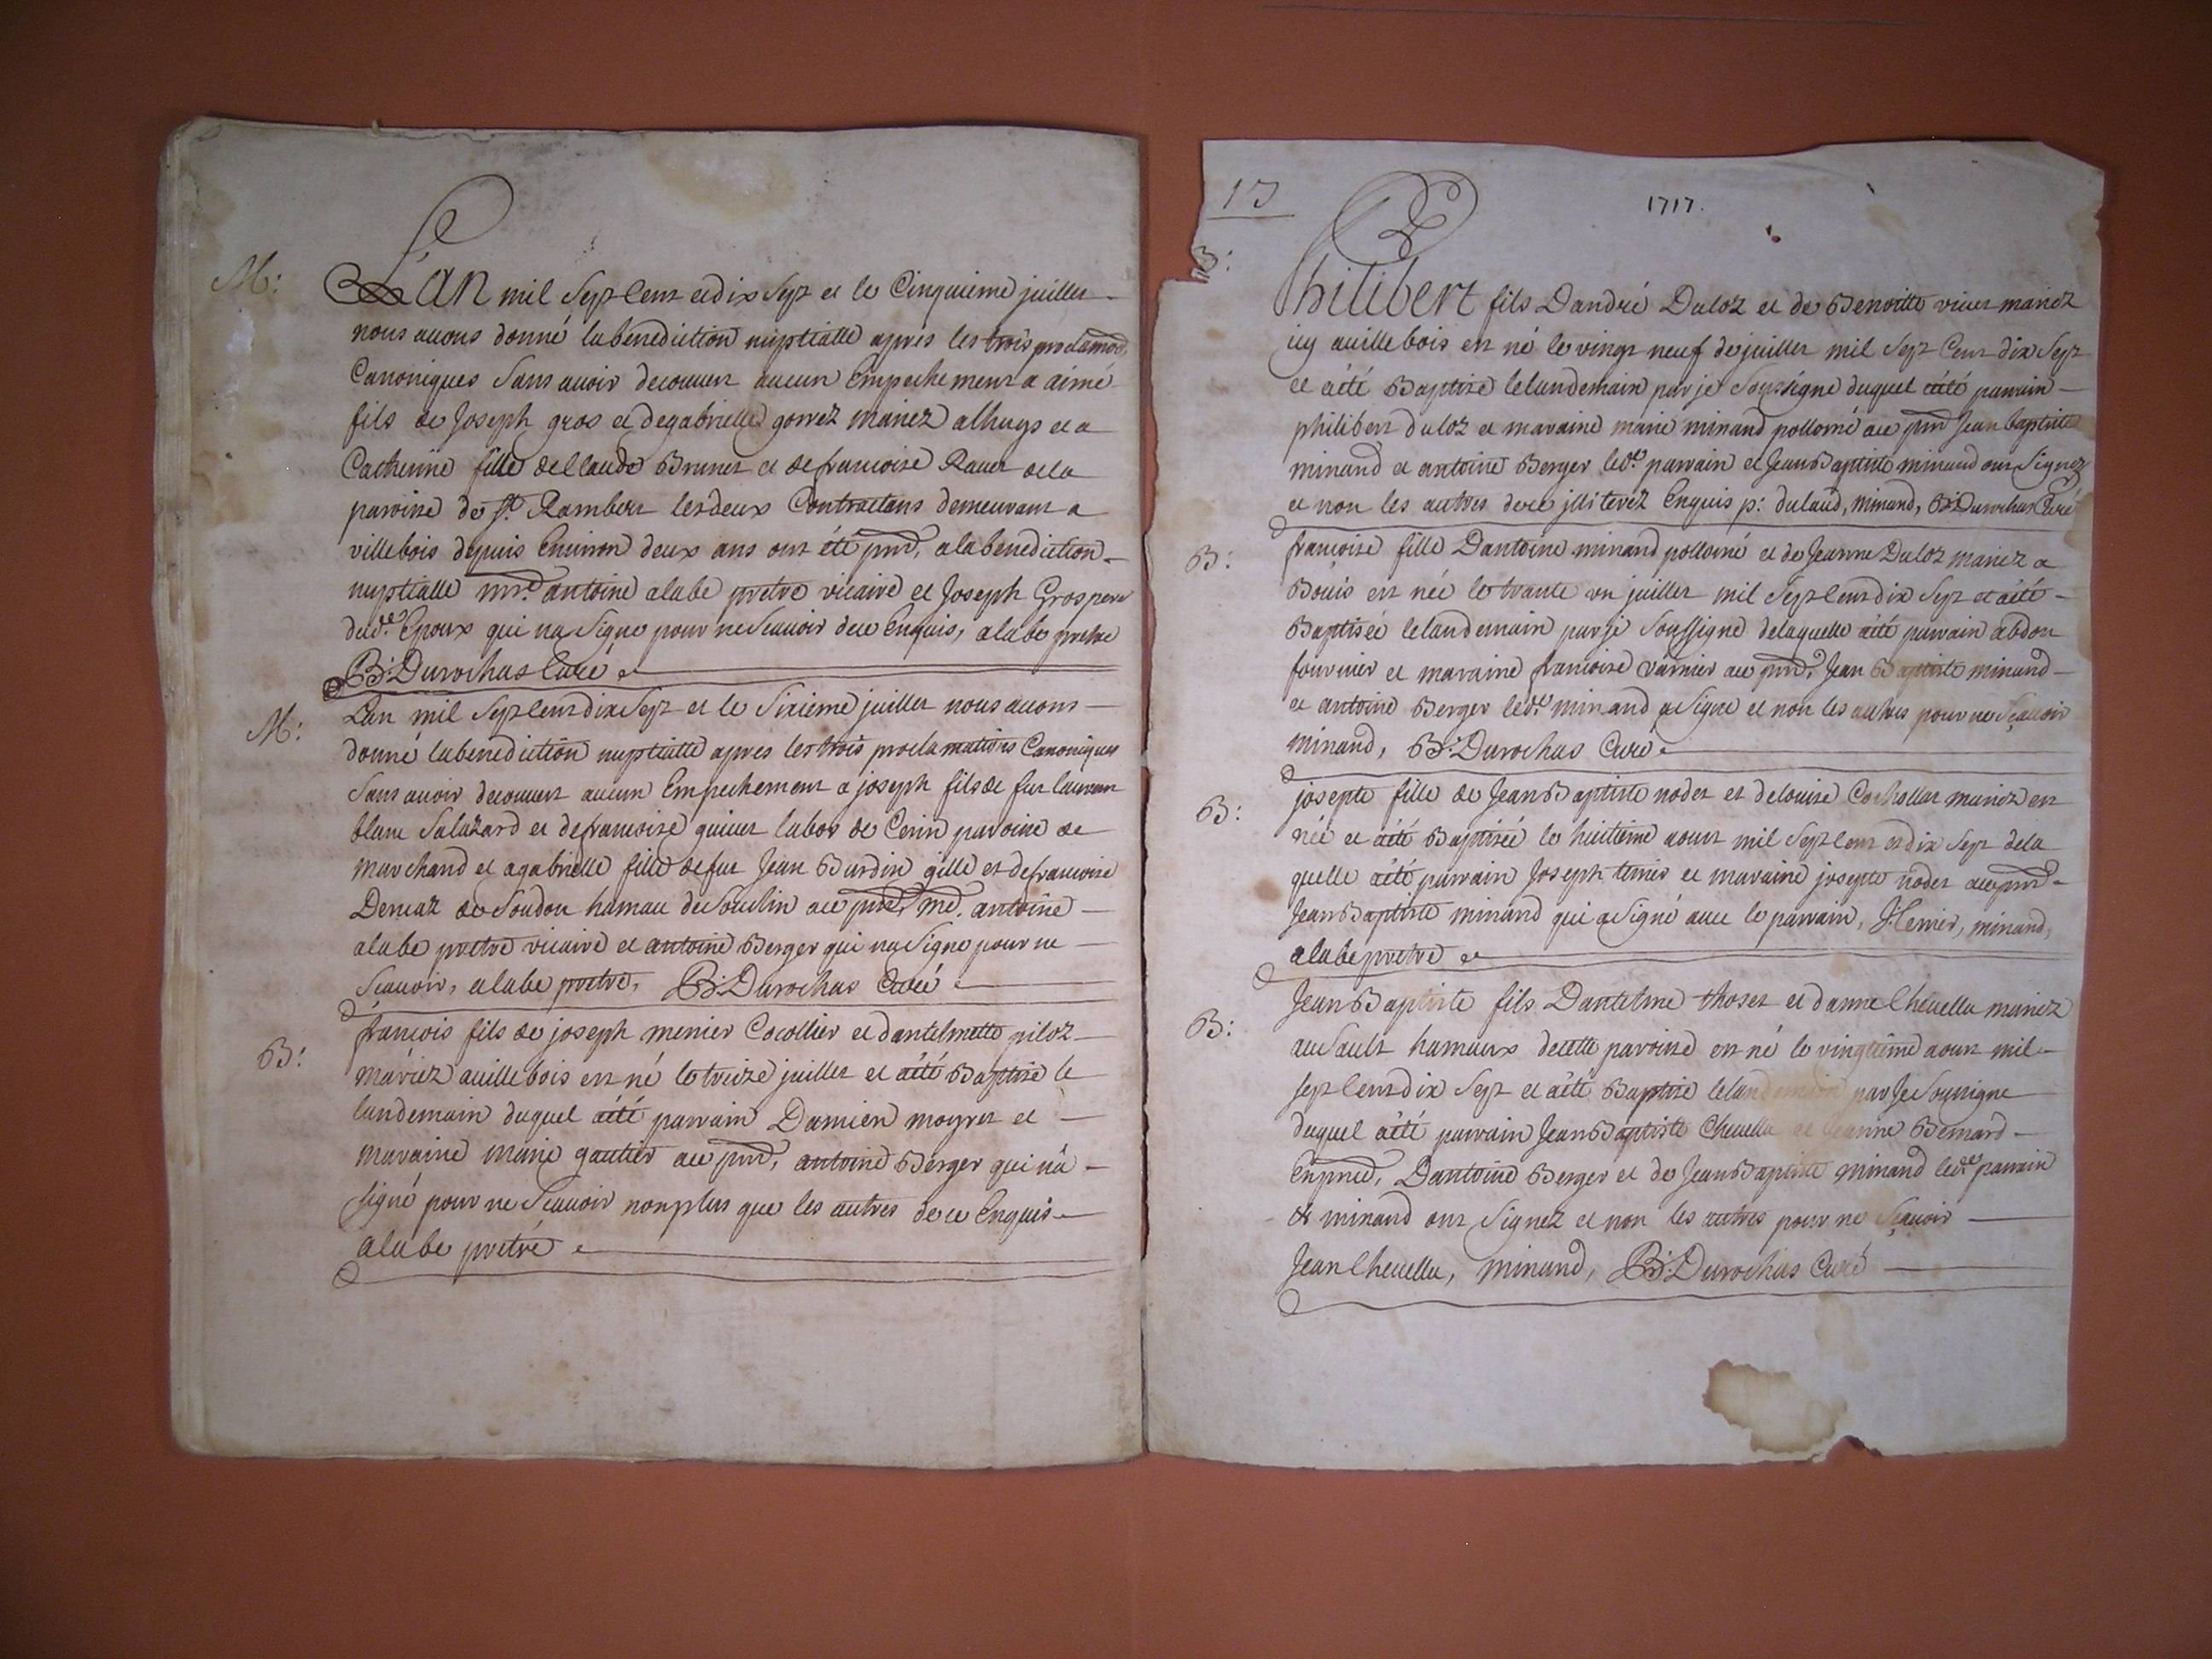 M: L'AN mil Sept Cent et dix Sept et le Cinquieme juillet
nous auons donné la benediction nuptialle apres les trois proclamaõs
Canoniques Sans auoir decouuert aucun Empechement a aimé
fils de Joseph gros et de gabrielle gorrez mariez alhuys et a
Catherine fille de Claude Brunet et de francoise Rauet de la
parroise de st. Rambert les deux Contractans demeurans a
villebois depuis Enuiron deux ans ont été pnts, a la benediction
nuptialle mre. antoine alabe pretre vicaire et Joseph Gros pere
dud.t Epoux qui na Signé pour ne Scauoir de ce Enquis, alabe pretre
B: Durochas Curé
M: Lan mil Sept Cent dix Sept et le Sixieme juillet nous auons
donné la benediction nuptialle apres les trois proclamations Canoniques
Sans auoir decouuert aucun Empechement a joseph fils de fut laurent
blanc Salazard et de francoise guiuet labor de Cerin paroise de
marchand et a gabrielle fille de fut Jean Burdin gille et de francoise
Demaz de Soudon hamau de Souclin ace pnts, mre. antoine
alabe pretre vicaire et antoine Berger qui na Signe pour ne
Scauoir, alabe pretre, B: Durochas Curé
B: francois fils de joseph menier Cocollier et dantelmette piloz
mariez a uillebois est né le treize juillet et aété Baptisé le
landemain duquel aété parrain Damien moyret et
maraine marie gautier ace pnts, antoine Berger qui nâ
signé pour ne Scauoir non plus que les autres de ce Enquis
alabe pretre
13
1717.
B: Philibert fils Dandré Duloz et de Benoitte viuet mariez
icy auillebois est né le vingt neuf de juillet mil Sept Cent dix Sept
et aété Baptisé le landemain par je Soussigné duquel aété parrain
philibert duloz et maraine marie minand pollomé ace pnts Jean baptiste
minand et antoine Berger led.t parrain et Jean Baptiste minand ont Signez
et non les autres de ce jlliterez Enquis p: dulaud, minand, B: Durochas Curé
B: francoise fille Dantoine minand pollomé et de Jeanne Duloz mariez a
Bouis est née le trante vn juillet mil Sept Cent dix Sept et aété
Baptisée le landemain par je Soussigné de laquelle aété parrain abdon
fournier et maraine francoise varnier ace pnts, Jean Baptiste minand
et antoine Berger led.t minand a Signe et non les autres pour ne Sçauoir
minand, B: Durochas Curé
B: josepte fille de Jean Baptiste nodet et de louise Cochollat mariez est
née et aété Baptisée le huitieme aout mil Sept Cent et dix Sept de la
quelle aété parrain Joseph tenis et maraine josepte nodet ace pnts
Jean Baptiste minand qui a Signé auec le parrain, J: tenier, minand,
alabe pretre
B: Jean Baptiste fils Dantelme thoset et danne Cheuellu mariez
au Sault hamaux de cette paroise est né le vingtieme aout mil
sept Cent dix Sept et aété Baptisé le landemain par Je Soussigne
duquel aété parrain Jean Baptiste Cheuellu et Jeanne Bernard
En pnce, Dantoine Berger et de Jean Baptiste minand led.t parrain
& minand ont Signez et non les autres pour ne Sçauoir
Jean Cheuellu, minand, B: Durochas Curé